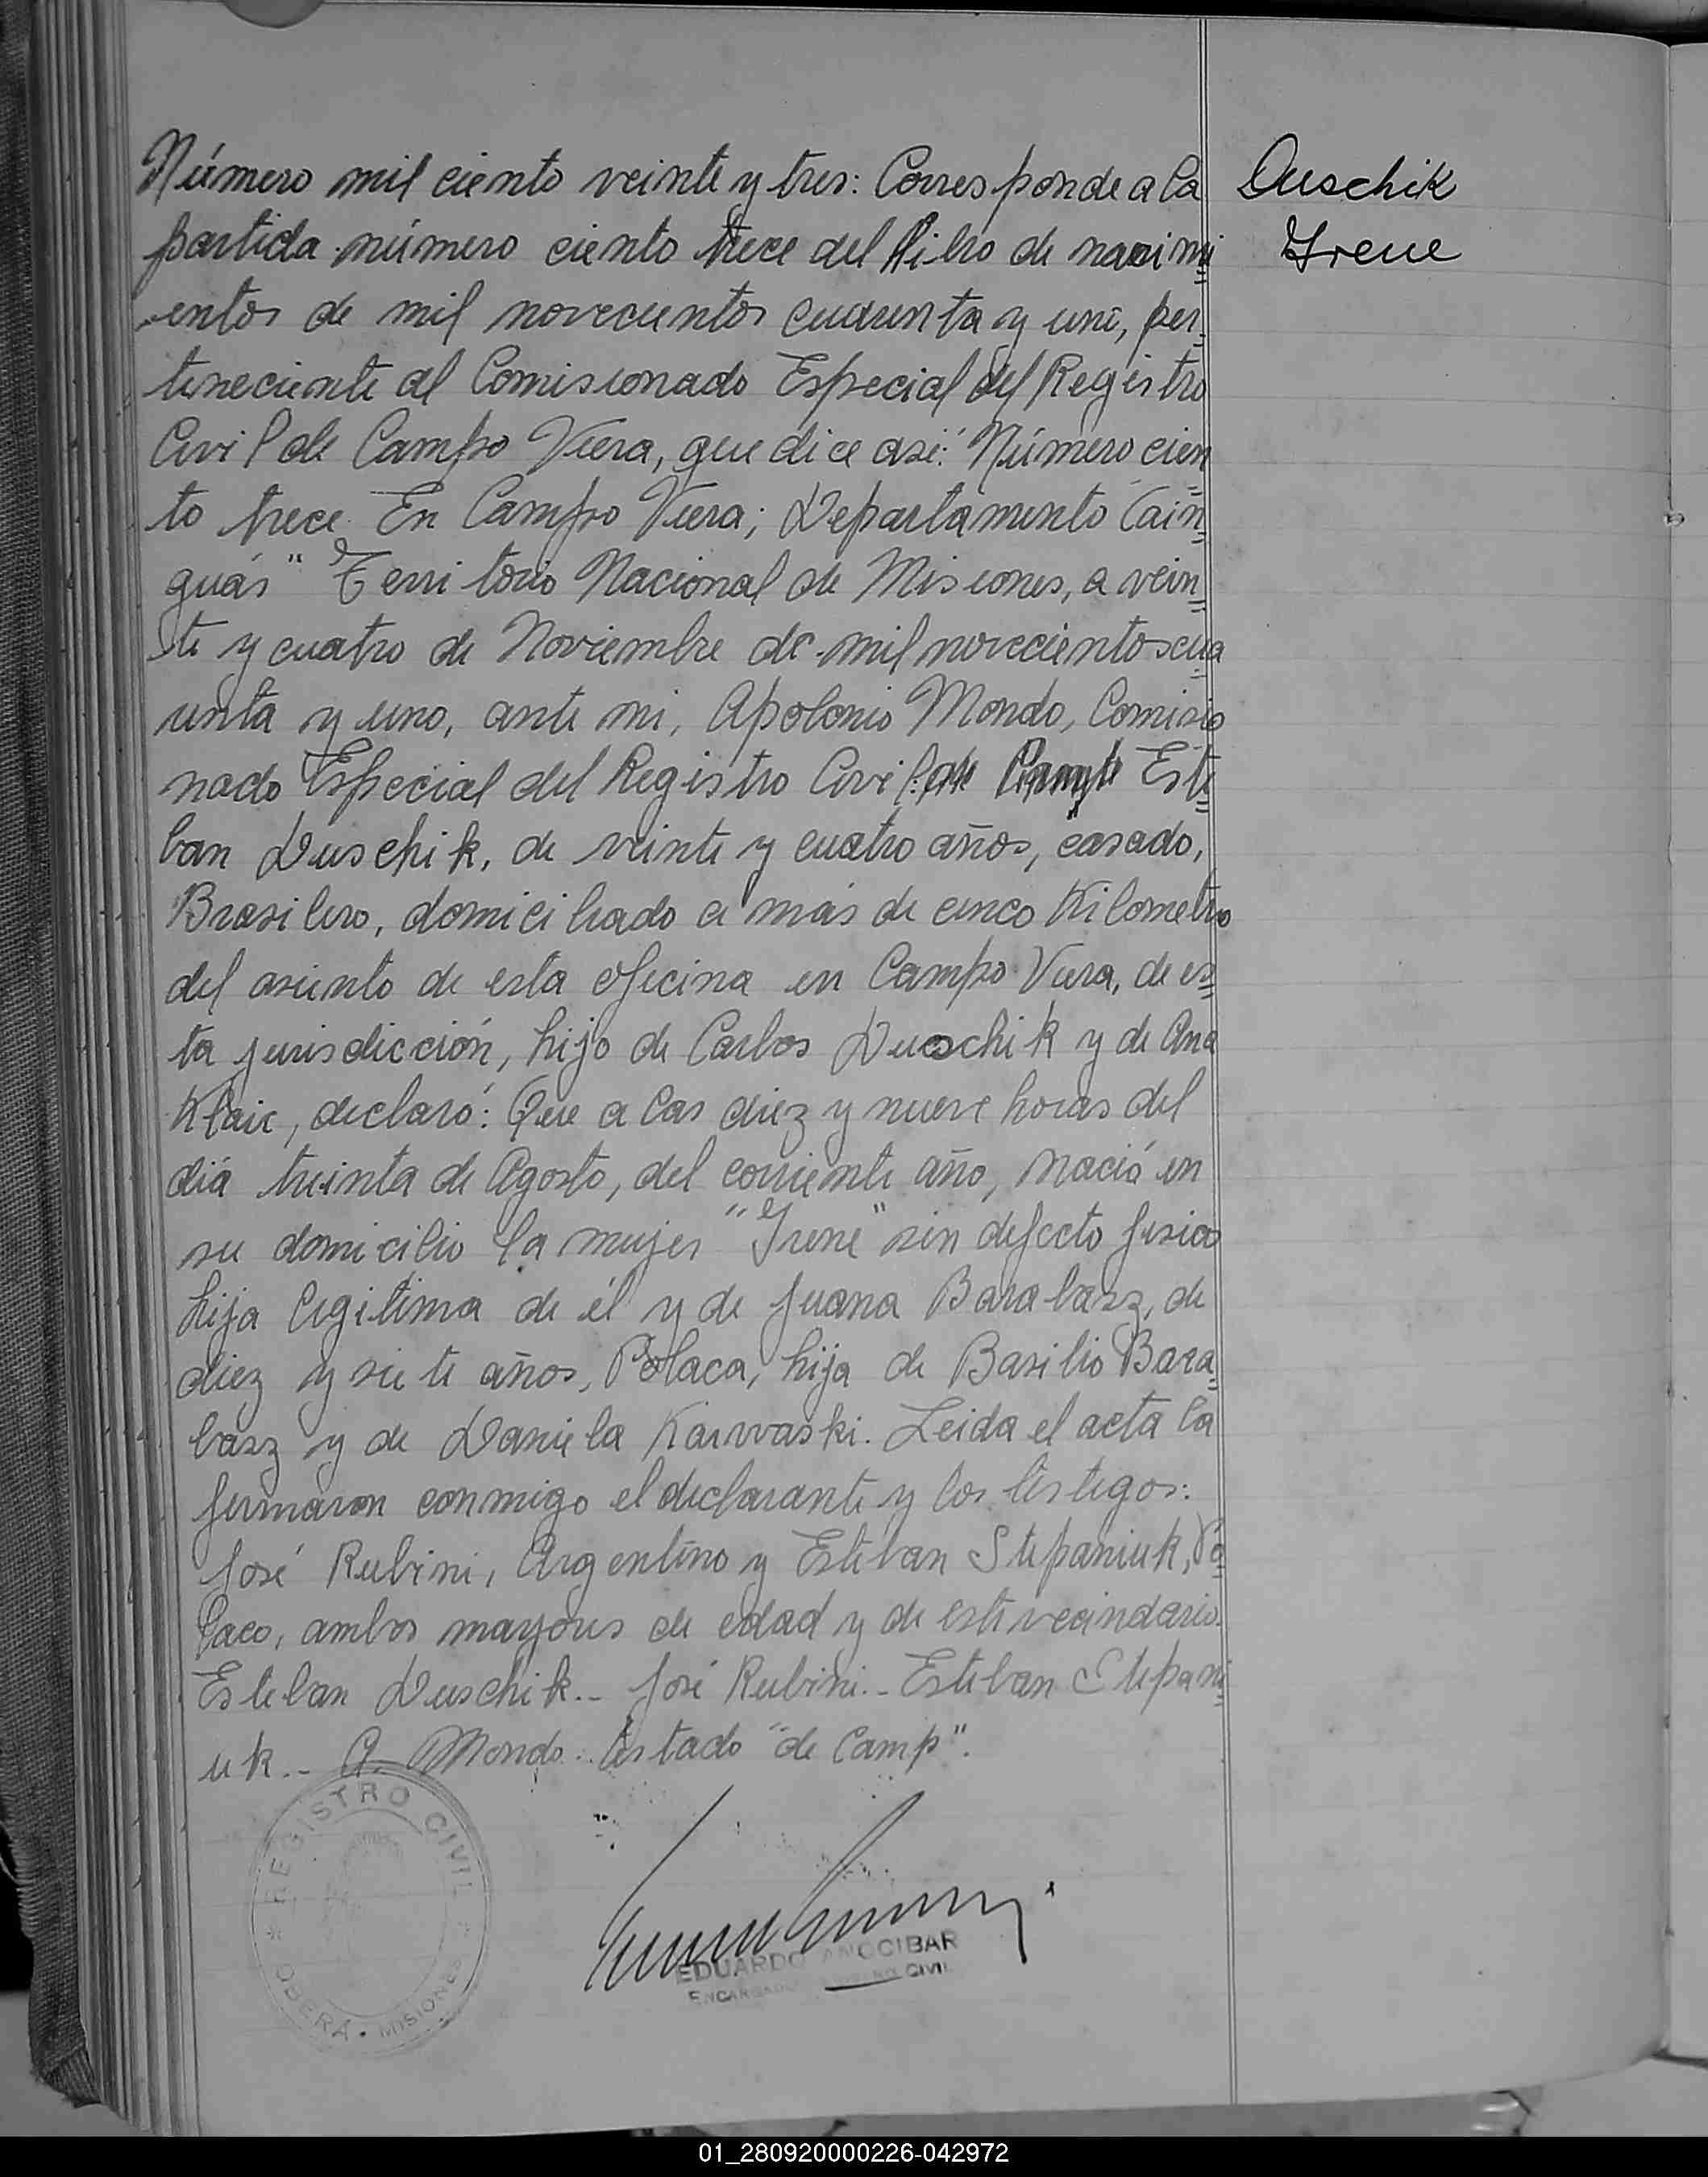 Número mil ciento veinte y tres: Corresponde a la
partida número ciento trece del libro de nacimi
entos de mil novecientos cuarenta y uno, per
teneciente al Comisionado Especial del Registro
Civil de Campo Viera, que dice asi: "Número cien
to trece En Campo Viera; Departamento Cain
guás" Territorio Nacional de Misiones, a vein
te y cuatro de Noviembre de mil novecientos cua
renta y uno, ante mi, Apolonio Mondo, Comisio
nado Especial del Registro Civil: de Camp Este
ban Duschik, de veinte y cuatro años, casado,
Brasilero, domiciliado a más de cinco Kilometro
del asiento de esta oficina en Campo Viera, de es
ta jurisdicción, hijo de Carlos Duschik y de Ana
Klaic, declaró: Que a las diez y nueve horas del
diá treinta de Agosto, del corriente año, nació en
su domicilio la mujer "Irene" sin defecto fisico
hija legitima de él y de Juana Barabasz, de
diez y siete años, Polaca, hija de Basilio Bara
basz y de Daniela Karwaski. Leida el acta la
firmaron conmigo el declarante y los testigos:
José Rubini, Argentino y Esteban Stepaniuk, Po
laco, ambos mayores de edad y de este vecindario.
Esteban Duschik.- José Rubini.- Esteban Stepani
uk.- A. Mondo. Testado "de Camp".
Duschik
Irene
REGISTRO CIVIL
OBERA • MISIONES
EDUARDO ANOCIBAR
ENCARGADO CIVIL
01_280920000226-042972